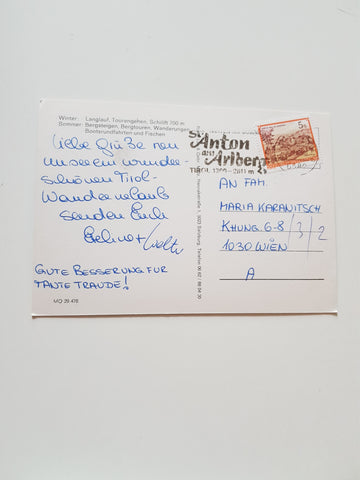 Winter: Langlauf, Tourengehen, Schilift 700 m
Sommer: Bergsteigen, Bergtouren, Wanderungen
Bootsrundfahrten und Fischen
Liebe Grüße von
unserem wunder-
schönen Tirol-
Wanderurlaub
senden Euch
GUTE BESSERUNG FÜR
TANTE TRAUDE!
MO 29 476
St. Anton
am Arlberg
TIROL 1300-2811 m
5 S
AN FAM.
MARIA KARANITSCH
KHUNG. 6-8/3/2
1030 WIEN
A